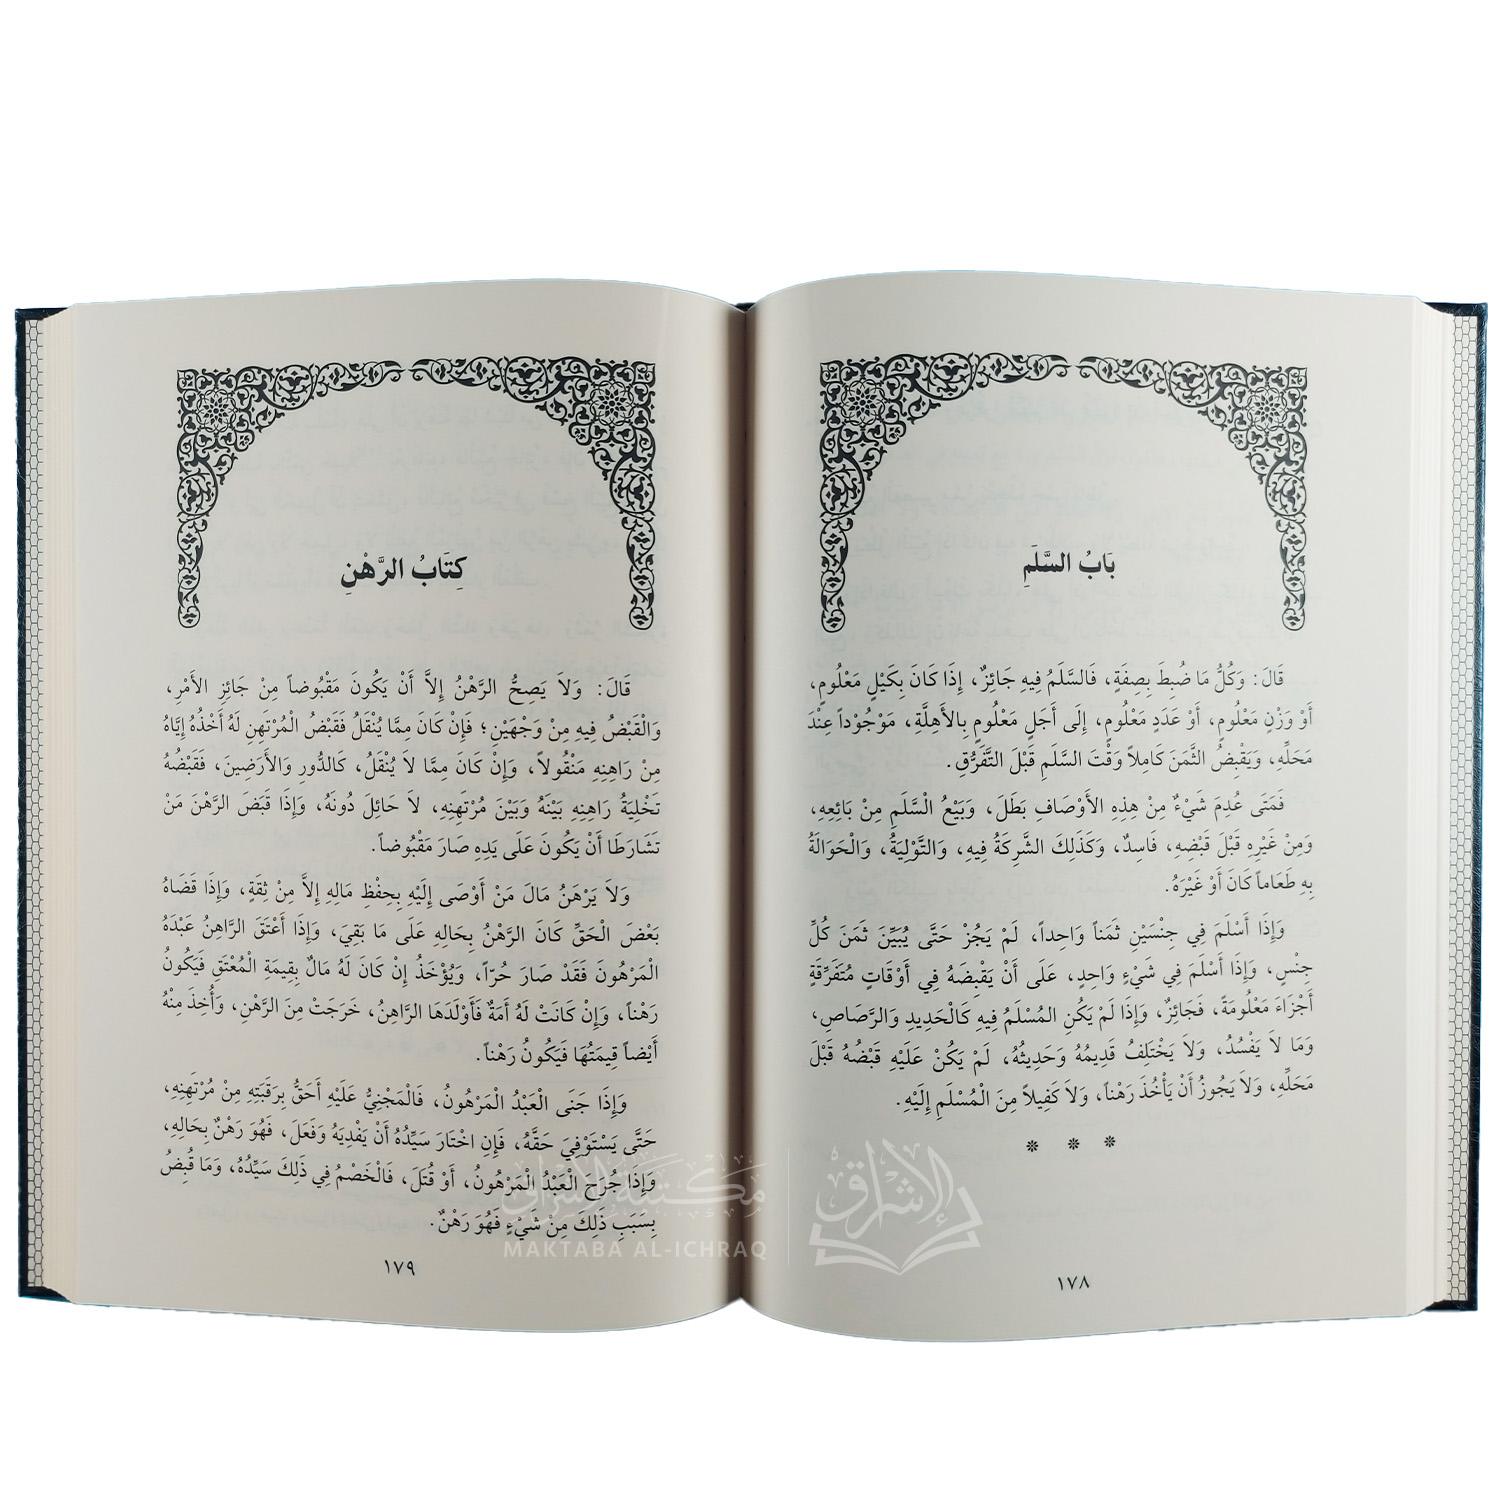 بَابُ السَّلَمِ
قَالَ: وَكُلُّ مَا ضُبِطَ بِصِفَةٍ، فَالسَّلَمُ فِيهِ جَائِزٌ، إِذَا كَانَ بِكَيْلٍ مَعْلُومٍ،
أَوْ وَزْنٍ مَعْلُومٍ، أَوْ عَدَدٍ مَعْلُومٍ، إِلَى أَجَلٍ مَعْلُومٍ بِالأَهِلَّةِ، مَوْجُوداً عِنْدَ
مَحَلِّهِ، وَيَقْبِضُ الثَّمَنَ كَامِلاً وَقْتَ السَّلَمِ قَبْلَ التَّفَرُّقِ.
فَمَتَى عُدِمَ شَيْءٌ مِنْ هَذِهِ الأَوْصَافِ بَطَلَ، وَبَيْعُ السَّلَمِ مِنْ بَائِعِهِ،
وَمِنْ غَيْرِهِ قَبْلَ قَبْضِهِ، فَاسِدٌ، وَكَذَلِكَ الشَّرِكَةُ فِيهِ، وَالتَّوْلِيَةُ، وَالْحَوَالَةُ
بِهِ طَعَاماً كَانَ أَوْ غَيْرَهُ.
وَإِذَا أَسْلَمَ فِي جِنْسَيْنِ ثَمَناً وَاحِداً، لَمْ يَجُزْ حَتَّى يُبَيِّنَ ثَمَنَ كُلِّ
جِنْسٍ، وَإِذَا أَسْلَمَ فِي شَيْءٍ وَاحِدٍ، عَلَى أَنْ يَقْبِضَهُ فِي أَوْقَاتٍ مُتَفَرِّقَةٍ
أَجْزَاءَ مَعْلُومَةً، فَجَائِزٌ، وَإِذَا لَمْ يَكُنِ المُسْلَمُ فِيهِ كَالْحَدِيدِ وَالرَّصَاصِ،
وَمَا لَا يَفْسُدُ، وَلَا يَخْتَلِفُ قَدِيمُهُ وَحَدِيثُهُ، لَمْ يَكُنْ عَلَيْهِ قَبْضُهُ قَبْلَ
مَحَلِّهِ، وَلَا يَجُوزُ أَنْ يَأْخُذَ رَهْناً، وَلَا كَفِيلاً مِنَ الْمُسْلَمِ إِلَيْهِ.
* * *
١٧٨
كِتَابُ الرَّهْنِ
قَالَ: وَلَا يَصِحُّ الرَّهْنُ إِلَّا أَنْ يَكُونَ مَقْبُوضاً مِنْ جَائِزِ الأَمْرِ،
وَالْقَبْضُ فِيهِ مِنْ وَجْهَيْنِ؛ فَإِنْ كَانَ مِمَّا يُنْقَلُ فَقَبْضُ الْمُرْتَهِنِ لَهُ أَخْذُهُ إِيَّاهُ
مِنْ رَاهِنِهِ مَنْقُولاً، وَإِنْ كَانَ مِمَّا لَا يُنْقَلُ، كَالدُّورِ وَالأَرَضِينَ، فَقَبْضُهُ
تَخْلِيَةُ رَاهِنِهِ بَيْنَهُ وَبَيْنَ مُرْتَهِنِهِ، لَا حَائِلَ دُونَهُ، وَإِذَا قَبَضَ الرَّهْنَ مَنْ
تَشَارَطَا أَنْ يَكُونَ عَلَى يَدِهِ صَارَ مَقْبُوضاً.
وَلَا يَرْهَنُ مَالَ مَنْ أَوْصَى إِلَيْهِ بِحِفْظِ مَالِهِ إِلَّا مِنْ ثِقَةٍ، وَإِذَا قَضَاهُ
بَعْضَ الْحَقِّ كَانَ الرَّهْنُ بِحَالِهِ عَلَى مَا بَقِيَ، وَإِذَا أَعْتَقَ الرَّاهِنُ عَبْدَهُ
الْمَرْهُونَ فَقَدْ صَارَ حُرّاً، وَيُؤْخَذُ إِنْ كَانَ لَهُ مَالٌ بِقِيمَةِ الْمُعْتَقِ فَيَكُونُ
رَهْناً، وَإِنْ كَانَتْ لَهُ أَمَةٌ فَأَوْلَدَهَا الرَّاهِنُ، خَرَجَتْ مِنَ الرَّهْنِ، وَأُخِذَ مِنْهُ
أَيْضاً قِيمَتُهَا فَيَكُونُ رَهْناً.
وَإِذَا جَنَى الْعَبْدُ الْمَرْهُونُ، فَالْمَجْنِيُّ عَلَيْهِ أَحَقُّ بِرَقَبَتِهِ مِنْ مُرْتَهِنِهِ،
حَتَّى يَسْتَوْفِيَ حَقَّهُ، فَإِنِ اخْتَارَ سَيِّدُهُ أَنْ يَفْدِيَهُ وَفَعَلَ، فَهُوَ رَهْنٌ بِحَالِهِ،
وَإِذَا جُرِحَ الْعَبْدُ الْمَرْهُونُ، أَوْ قُتِلَ، فَالْخَصْمُ فِي ذَلِكَ سَيِّدُهُ، وَمَا قُبِضَ
بِسَبَبِ ذَلِكَ مِنْ شَيْءٍ فَهُوَ رَهْنٌ.
١٧٩
مكتبة الإشراق
MAKTABA AL-ICHRAQ
الإشراق